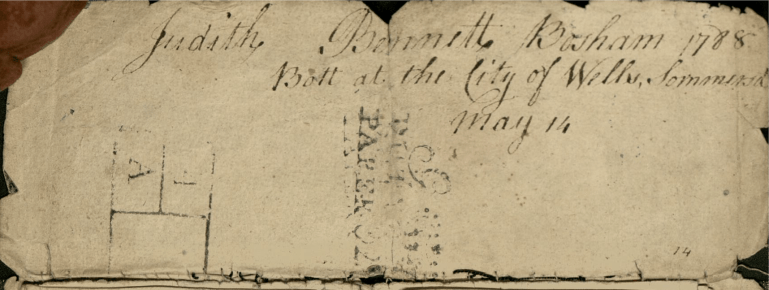 Judith Bennett Bosham 1788
Bott at the City of Wells, Sommersd
may 14
A
14